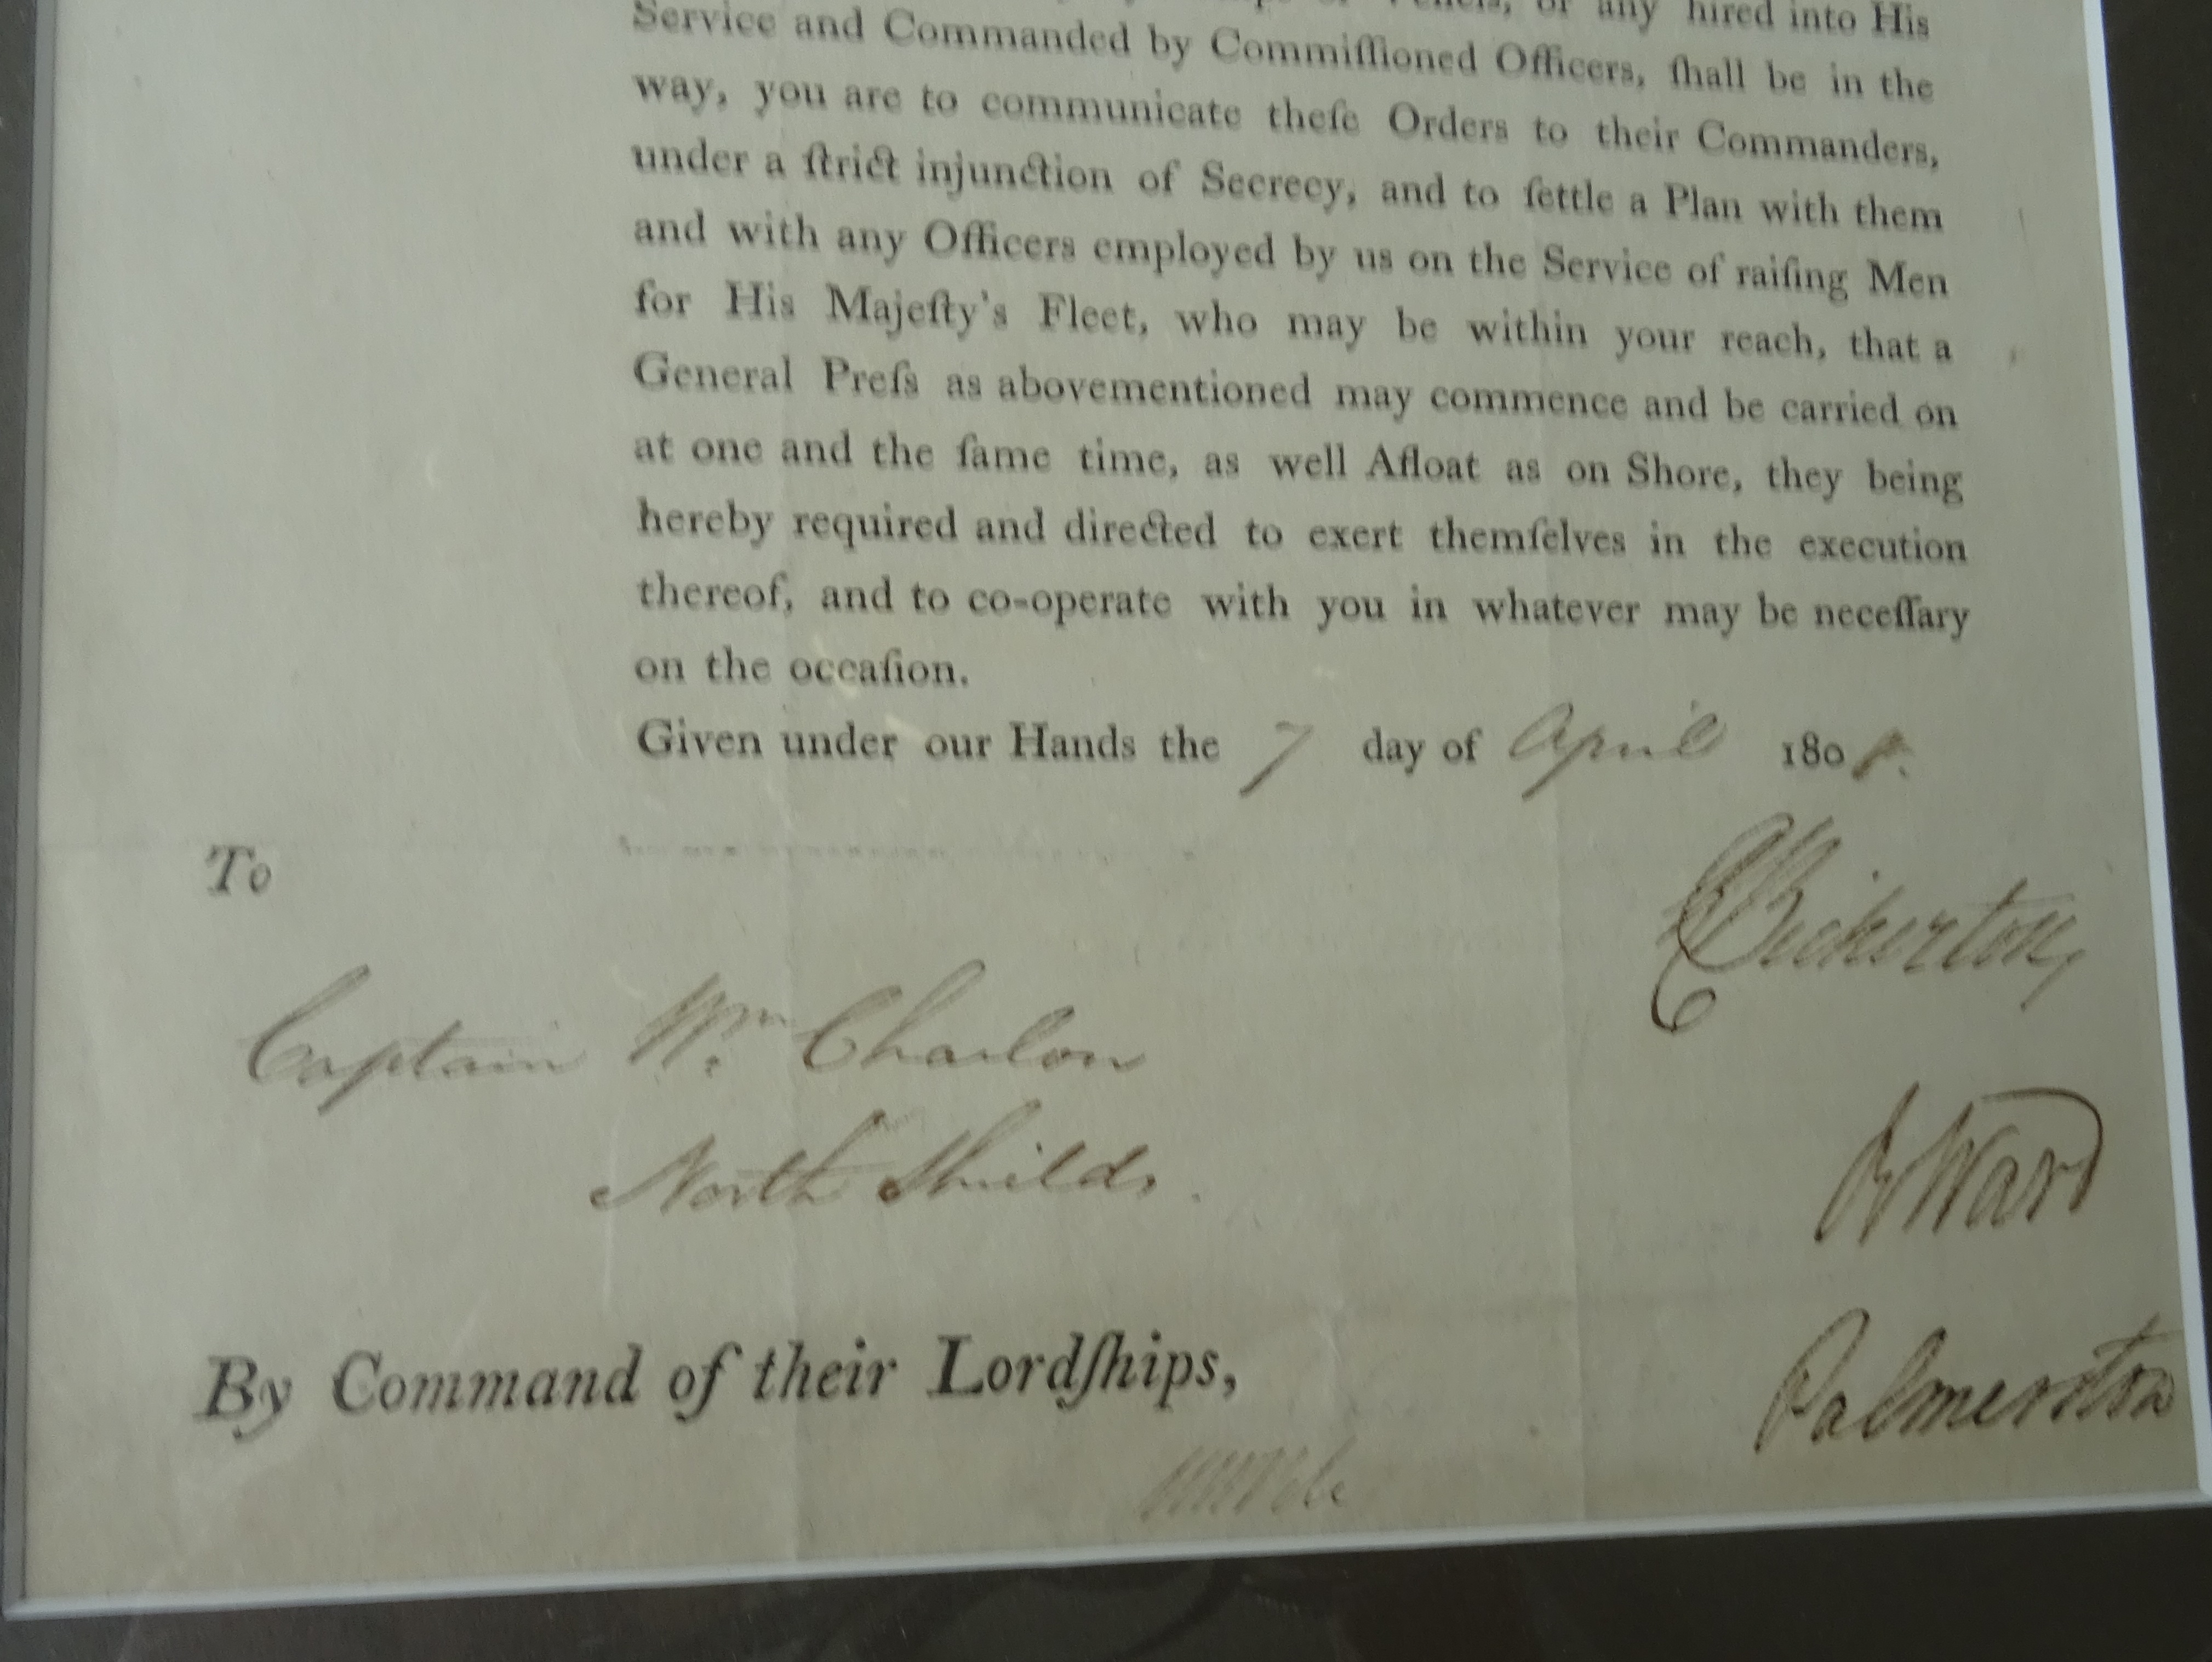 or any hired into His
Service and Commanded by Commiſſioned Officers, ſhall be in the
way, you are to communicate theſe Orders to their Commanders,
under a ſtrict injunction of Secrecy, and to ſettle a Plan with them
and with any Officers employed by us on the Service of raiſing Men
for His Majeſty's Fleet, who may be within your reach, that a
General Preſs as abovementioned may commence and be carried on
at one and the ſame time, as well Afloat as on Shore, they being
hereby required and directed to exert themſelves in the execution
thereof, and to co-operate with you in whatever may be neceſſary
on the occaſion.
Given under our Hands the 7 day of April 1808.
To
Bickerton
Captain Wm Charlton
North Shields.
R Ward
By Command of their Lordſhips,
Palmerston